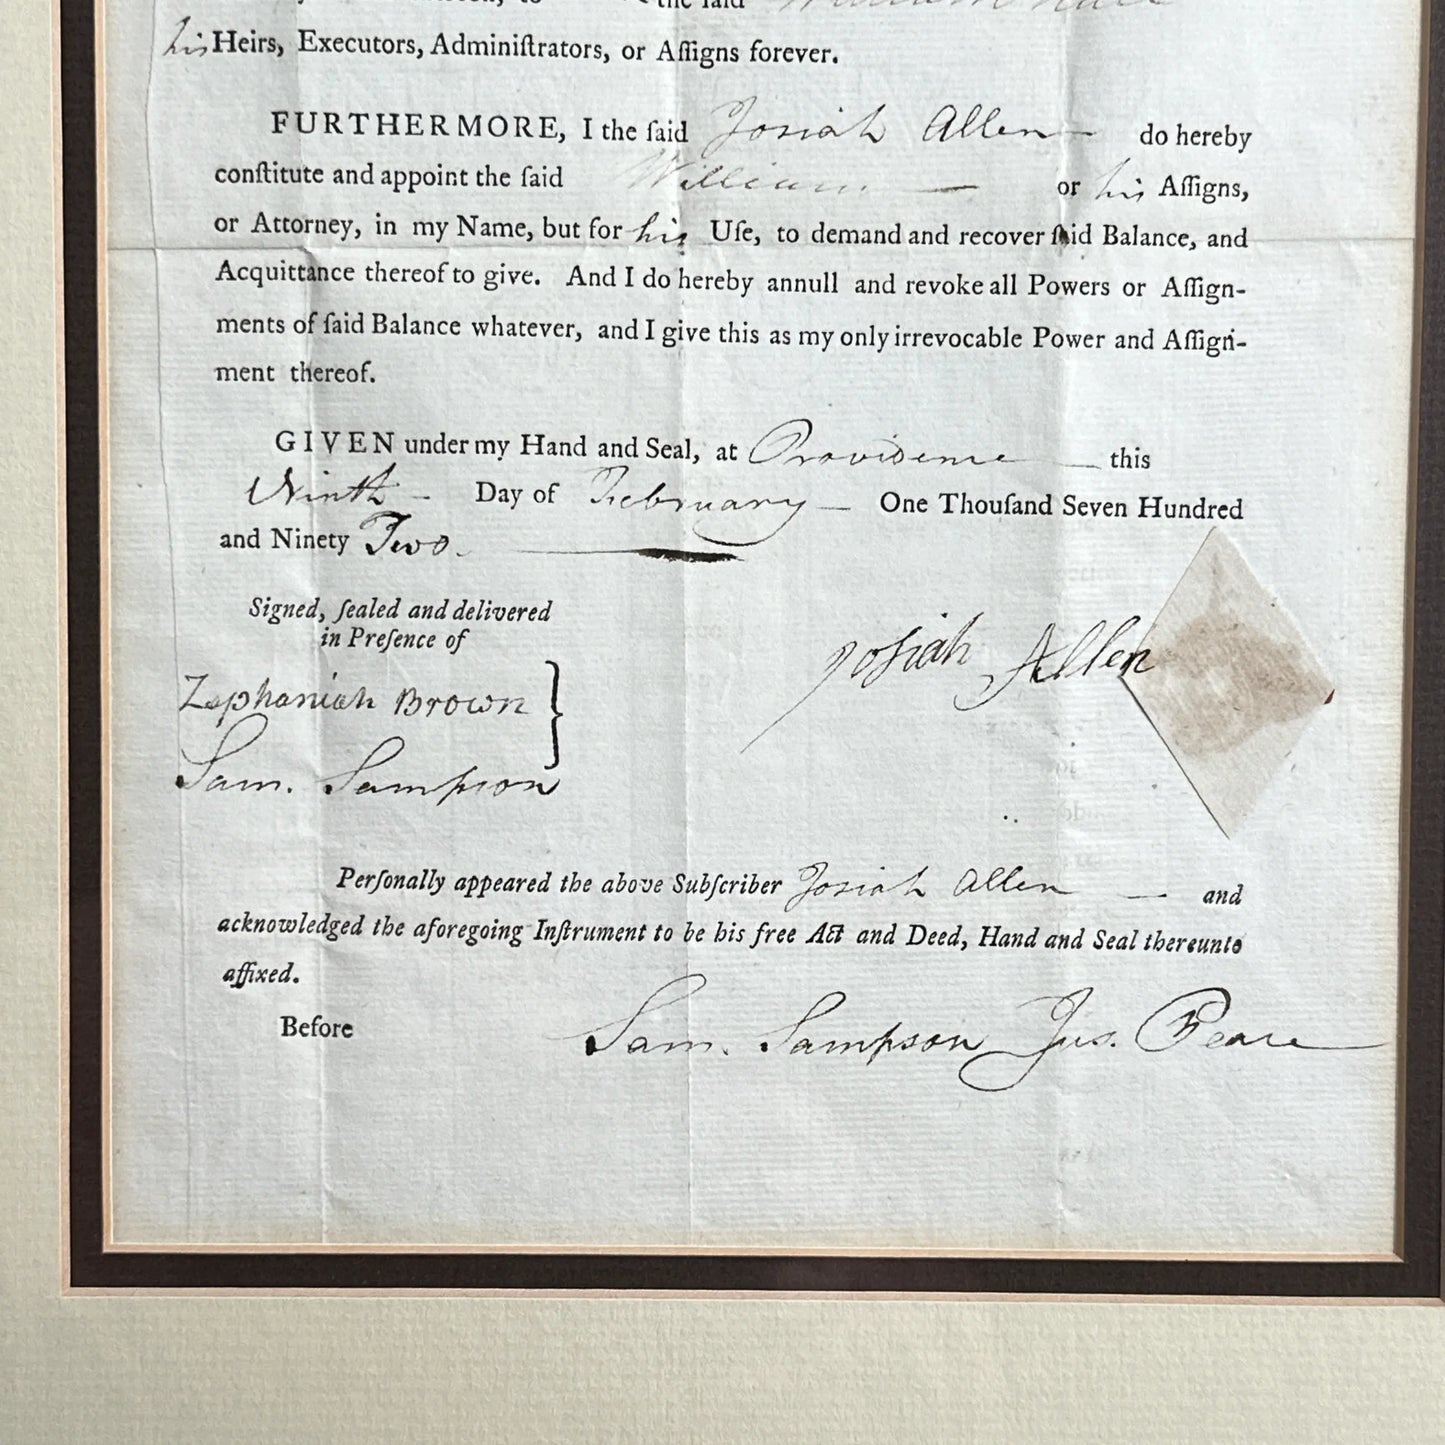 the ſaid William
his Heirs, Executors, Adminiſtrators, or Aſſigns forever.
FURTHERMORE, I the ſaid Josiah Allen do hereby
conſtitute and appoint the ſaid William or his Aſſigns,
or Attorney, in my Name, but for his Uſe, to demand and recover ſaid Balance, and
Acquittance thereof to give. And I do hereby annull and revoke all Powers or Aſſign-
ments of ſaid Balance whatever, and I give this as my only irrevocable Power and Aſſign-
ment thereof.
GIVEN under my Hand and Seal, at Providence this
Ninth Day of February One Thouſand Seven Hundred
and Ninety Two.
Signed, ſealed and delivered
in Preſence of
Zephaniah Brown
Sam. Sampson
Joſiah Allen
Perſonally appeared the above Subſcriber Josiah Allen and
acknowledged the aforegoing Inſtrument to be his free Act and Deed, Hand and Seal thereunto
affixed.
Before
Sam. Sampson Jus. Peace